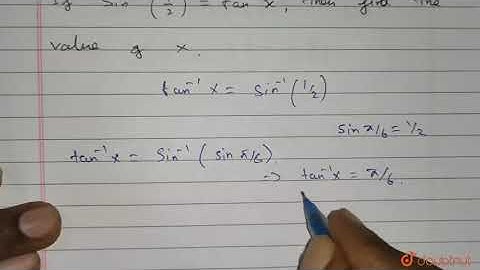 If sin⁻¹(1/2) = tan⁻¹ x, then find the
value of x.
tan⁻¹ x = sin⁻¹(1/2)
sin π/6 = 1/2
tan⁻¹ x = sin⁻¹(sin π/6)
→ tan⁻¹ x = π/6.
doubtnut